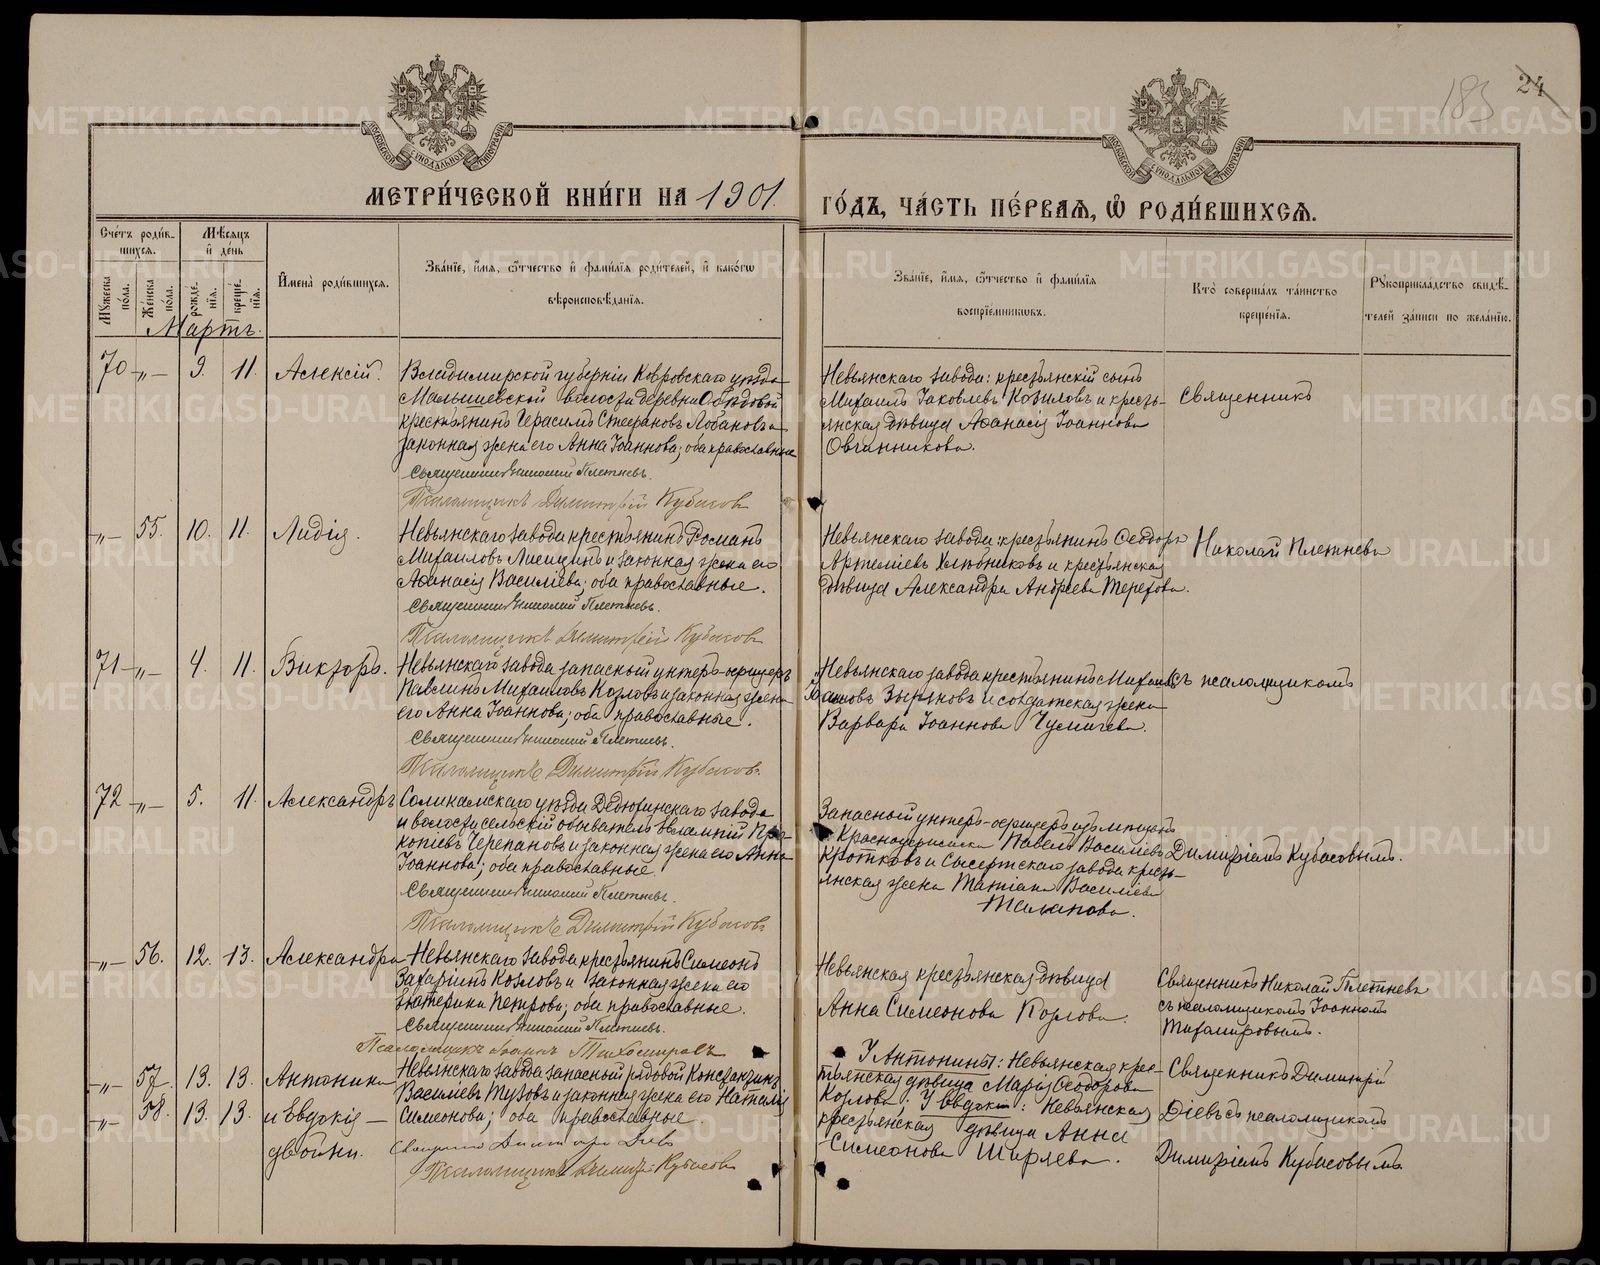 183 24
МОСКОВСКОЙ СѴНОДАЛЬНОЙ ТИПОГРАФІИ
МОСКОВСКОЙ СѴНОДАЛЬНОЙ ТИПОГРАФІИ
МЕТРИ́ЧЕСКОЙ КНИ́ГИ НА 1901.
ГО́ДЪ, ЧА́СТЬ ПЕ́РВАѦ, Ѿ РОДИ́ВШИХСѦ.
Сче́тъ роди́в-
шихсѧ.
Мꙋжеска по́ла.
Же́нска по́ла.
Мѣ́сѧцъ
и҆ де́нь
рожде́нїѧ.
креще́нїѧ.
И҆мена̀ роди́вшихсѧ.
Зва́нїе, и҆́мѧ, ѻ҆́тчество и҆ фами́лїѧ роди́телей, и҆ како́гѡ
вѣроисповѣ́данїѧ.
Зва́нїе, и҆́мѧ, ѻ҆́тчество и҆ фами́лїѧ
воспрїе́мниковъ.
Кто̀ соверша́лъ та́инство
креще́нїѧ.
Рꙋкоприкла́дство свидѣ́-
телей за́писи по жела́нїю.
Мартъ.
70 -„- 9. 11. Алексій.
Владимирской губерніи Ковровскаго уѣзда
Малышевской волости деревни
крестьянинъ Герасимъ Стефановъ Лобановъ и
законная жена его Анна Іоаннова; оба православные
Священникъ Николай Плетневъ.
Псаломщикъ Димитрій Кубасовъ
Невьянскаго завода: крестьянскій сынъ
Михаилъ Іаковлевъ и кресть-
янская дѣвица Аѳанасія Іоаннова
Овчинникова.
Священникъ
-„- 55. 10. 11. Лидія.
Невьянскаго завода крестьянинъ Романъ
Михаиловъ и законная жена его
Аѳанасія Василіева; оба православные.
Священникъ Николай Плетневъ.
Псаломщикъ Димитрій Кубасовъ
Невьянскаго завода: крестьянинъ Ѳеодоръ
Артеміевъ Хлѣбниковъ и крестьянская
дѣвица Александра Андреева Терехова.
Николай Плетневъ
71 -„- 4. 11. Викторъ.
Невьянскаго завода запасный унтеръ-офицеръ
Павлинъ Михаиловъ Козловъ и законная жена
его Анна Іоаннова; оба православные.
Священникъ Николай Плетневъ.
Псаломщикъ Димитрій Кубасовъ.
Невьянскаго завода крестьянинъ Михаилъ
Зыряновъ и солдатская жена
Варвара Іоаннова Чумичева.
съ псаломщикомъ
72 -„- 5. 11. Александръ
Соликамскаго уѣзда Дедюхинскаго завода
и волости сельскій обыватель Евлампій Про-
копіевъ Черепановъ и законная жена его Анна
Іоаннова; оба православные.
Священникъ Николай Плетневъ.
Псаломщикъ Димитрій Кубасовъ
Запасный унтеръ-офицеръ изъ мѣщанъ
г. Красноуфимска Павелъ Василіевъ
Кротковъ и Сысертскаго завода кресть-
янская жена Татіана Василіева
Талапова.
Димитріемъ Кубасовымъ.
-„- 56. 12. 13. Александра
Невьянскаго завода крестьянинъ Симеонъ
Захаріинъ Козловъ и законная жена его
Екатерина Петрова; оба православные.
Священникъ Николай Плетневъ.
Псаломщикъ Іоаннъ Тихомировъ
Невьянская крестьянская дѣвица
Анна Симеонова Козлова.
Священникъ Николай Плетневъ
съ псаломщикомъ Іоанномъ
Тихомировымъ.
-„- 57. 13. 13. Антонина
-„- 58. 13. 13. и Евдокія —
двойни.
Невьянскаго завода запасный рядовой Константинъ
Василіевъ Тузовъ и законная жена его Наталія
Симеонова; оба православные.
Священникъ Димитрій Діевъ
Псаломщикъ Димитрій Кубасовъ
У Антонины: Невьянская крес-
тьянская дѣвица Марія Ѳеодорова
Козлова. У Евдокіи: Невьянская
крестьянская дѣвица Анна
Симеонова Ширяева.
Священникъ Димитрій
Діевъ съ псаломщикомъ
Димитріемъ Кубасовымъ.
METRIKI.GASO-URAL.RU